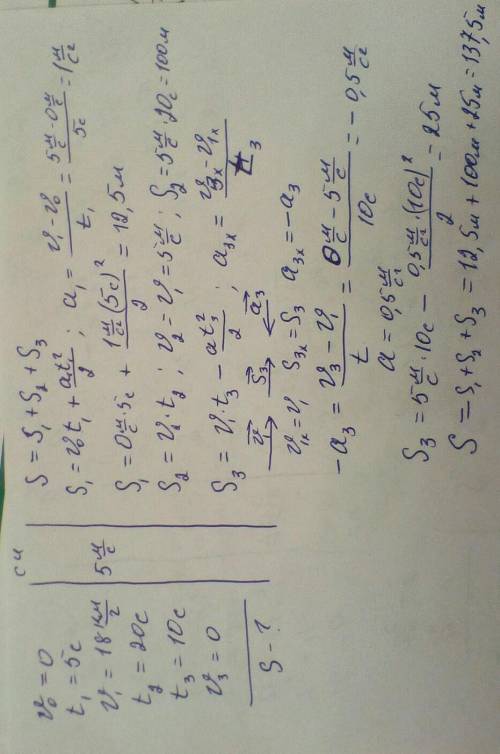 v₀ = 0
t₁ = 5c
v₁ = 18 км/г
t₂ = 20c
t₃ = 10c
v₃ = 0
S – ?
си
5 м/c
S = S₁ + S₂ + S₃
S₁ = v₀t₁ + at₁²/2 ; a₁ = (v₁ - v₀)/t₁ = (5 м/c - 0 м/c)/5c = 1 м/c²
S₁ = 0 м/c · 5c + 1 м/c² (5c)²/2 = 12,5 м
S₂ = v₂ · t₂ ; v₂ = v₁ = 5 м/c ; S₂ = 5 м/c · 20c = 100 м
S₃ = v₁ · t₃ - at₃²/2 ; a₃ₓ = (v₃ₓ - v₁ₓ)/t₃
v₁→ S₃→ a₃←
vₓ = v₁ S₃ₓ = S₃ a₃ₓ = -a₃
-a₃ = (v₃ - v₁)/t = (0 м/c - 5 м/c)/10c = -0,5 м/c²
a = 0,5 м/c²
S₃ = 5 м/c · 10c - 0,5 м/c² · (10c)²/2 = 25 м
S = S₁ + S₂ + S₃ = 12,5 м + 100 м + 25 м = 137,5 м